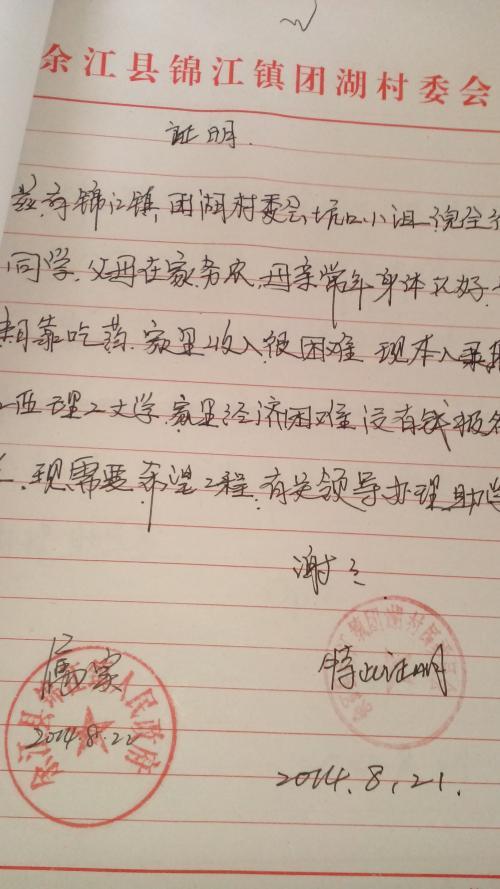 余江县锦江镇团湖村委会
证明.
兹有锦江镇,团湖村委会坑口小组倪全
同学.父母在家务农.母亲常年身体不好.
期靠吃药.家里收入很困难 现本人录取
理工大学.家里经济困难没有钱报名
现需要希望工程.有关领导办理助学
谢谢
属实
特此证明
2014.8.22
2014.8.21.
余江县锦江镇人民政府
江镇团湖村